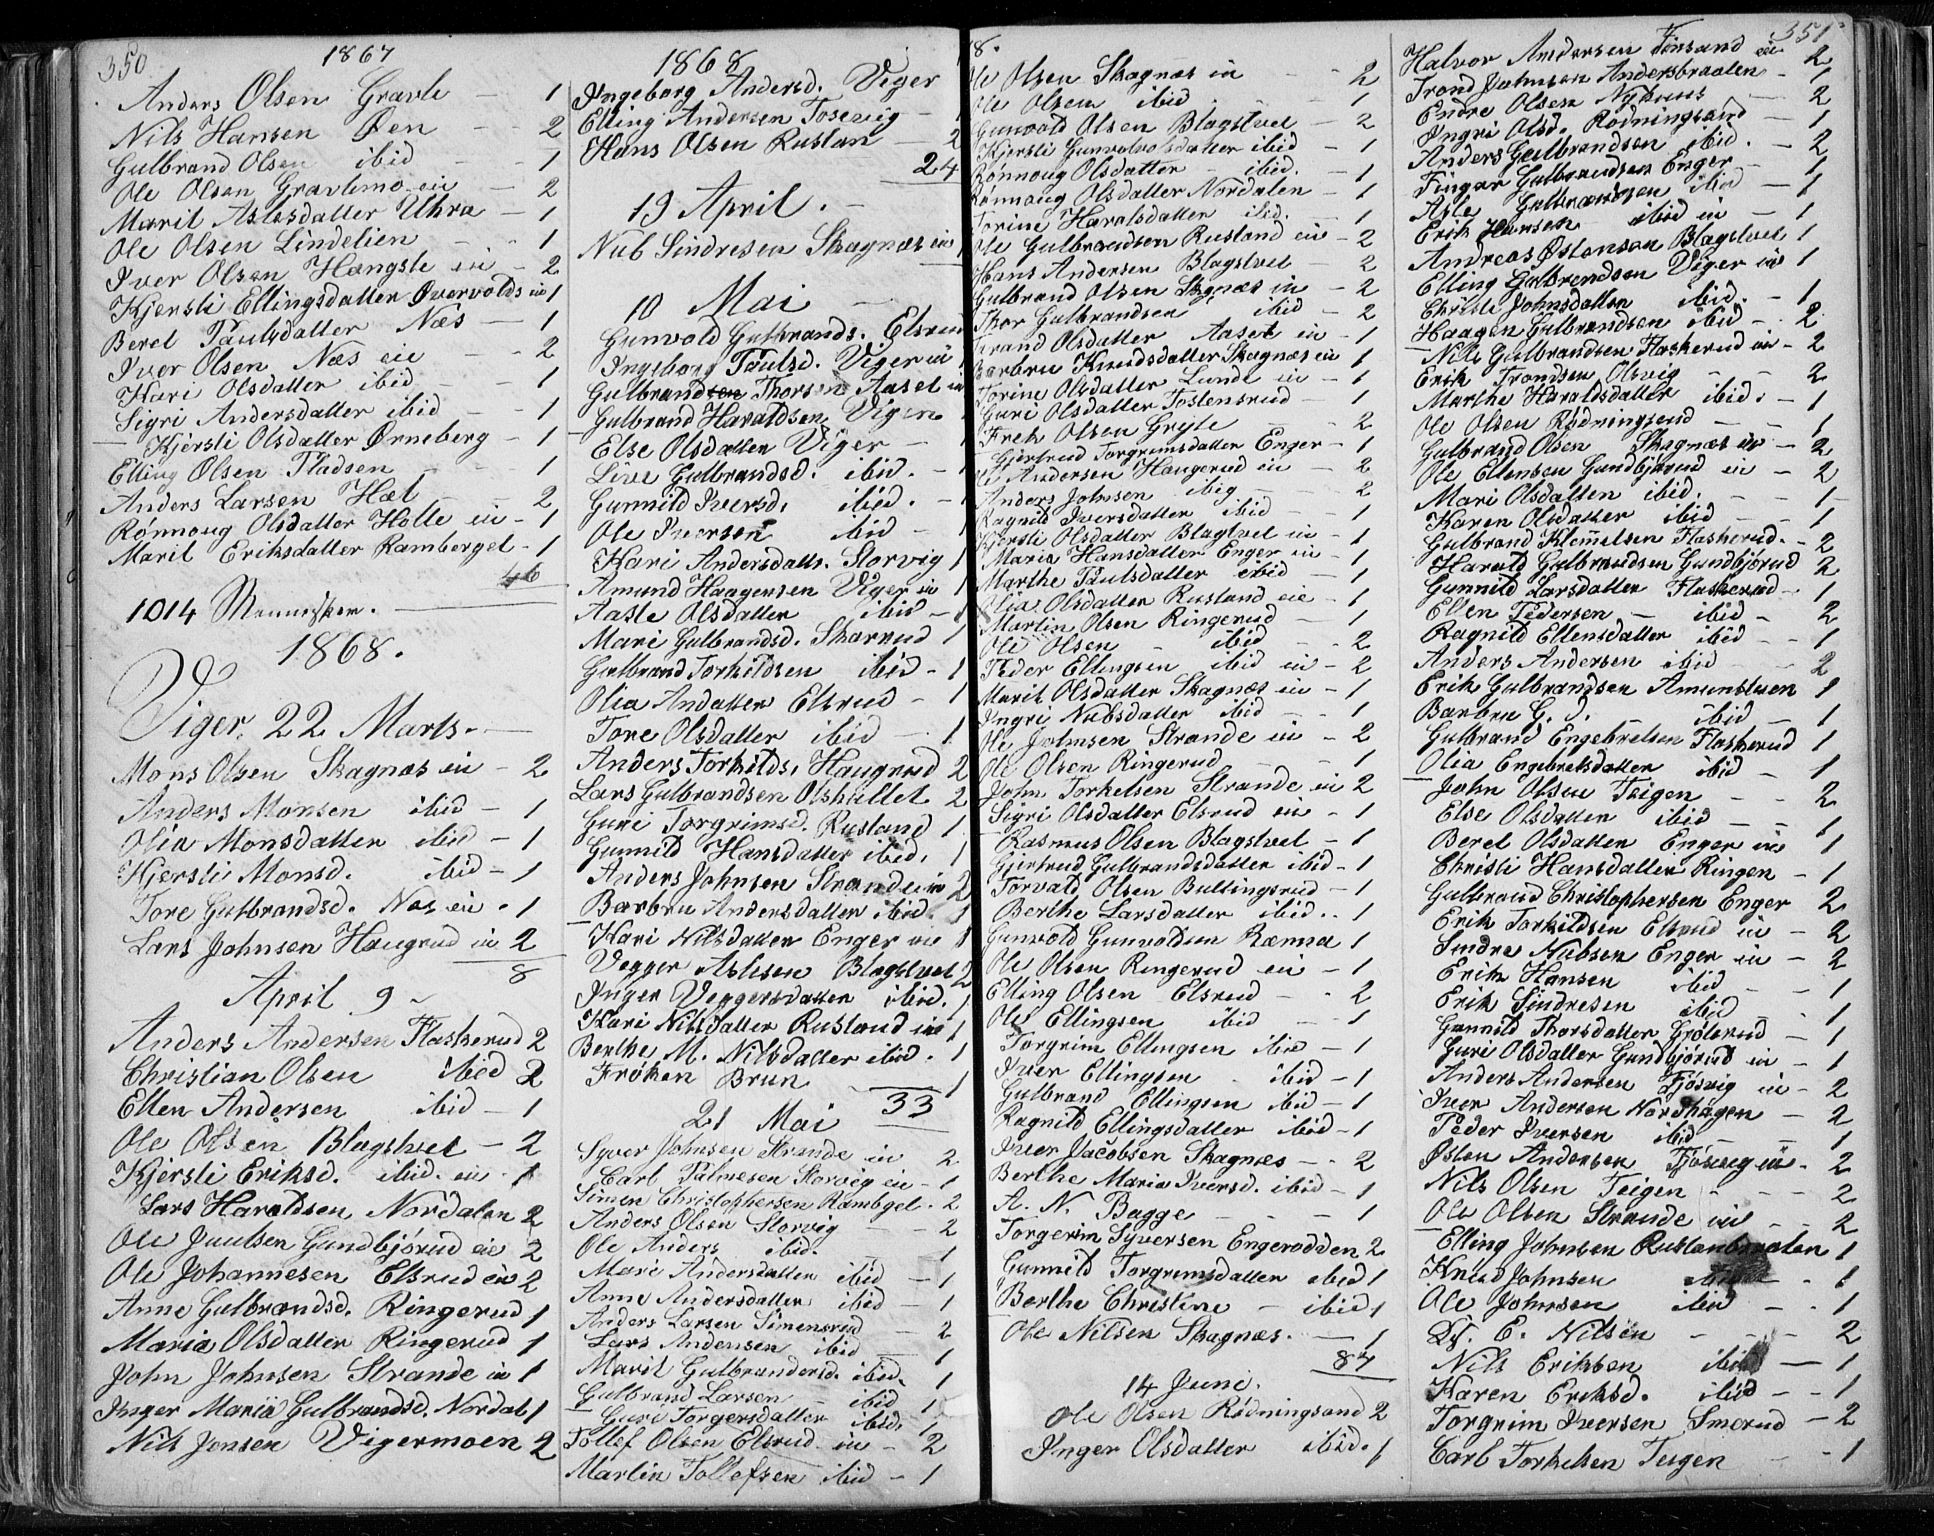 350
1867
Anders Olsen Gravli — 1
Nils Hansen Øen — 2
Gulbrand Olsen ibid — 1
Ole Olsen Gravlimo eie — 2
Marit Aslesdatter Uhra — 1
Ole Olsen Lindelien — 1
Iver Olsen Hængsle eie — 2
Kjersti Ellingsdatter Øvervolds eie 1
Beret Paulsdatter Næs — 1
Iver Olsen Næs eie — 2
Kari Olsdatter ibid — 1
Sigri Andersdatter ibid — 1
Kjersti Olsdatter Ørneberg — 1
Elling Olsen Pladsen — 1
Anders Larsen Hæl — 2
Rønnoug Olsdatter Holle eie — 1
Marit Eriksdatter Ramberget — 1
46
1014 Mennesker.
1868.
Viger 22 Marts.
Mons Olsen Skagnæs eie — 2
Anders Monsen ibid — 1
Olia Monsdatter ibid — 1
Kjersti Monsd. ibid — 1
Tore Gulbrandsd. Næs eie — 1
Lars Johnsen Haugrud eie 2
8
April 9
Anders Andersen Flaskerud 2
Christian Olsen ibid 2
Ellen Andersen ibid — 1
Ole Olsen Blagstvet — 2
Kjersti Eriksd. ibid. eie — 1
Lars Haraldsen Nordalen 2
Ole Juulsen Gundbjørud eie 2
Ole Johannesen Elsrud eie 2
Anne Gulbrandsd. Ringerud 1
Maria Olsdatter Ringerud 1
John Johnsen Strande eie 1
Inger Maria Gulbrandsd. Nordal. 1
Nils Jensen Vigermoen 2
1868
Ingeborg Andersd. Viger
Elling Andersen Fosevig —
Hans Olsen Rustan — 2
24
19 April.
Nub Sindresen Skagnæs eie
10 Mai
Gunvold Gulbrands. Elsrud
Ingeborg Paulsd. Viger eie
Gulbrand Thorsen Aaset eie
Gulbrand Haraldsen Viger
Else Olsdatter Viger — 1
Live Gulbrandsd. ibid. — 1
Gunnild Iversd. ibid. — 1
Ole Iversen ibid — 1
Kari Andersdattr. Storvig 1
Amund Haagensen Viger eie 1
Aasle Olsdatter ibid — 1
Mari Gulbrandsd. Skarrud 1
Gulbrand Torkildsen ibid — 1
Olia Andatter Elsrud — 1
Tore Olsdatter ibid — 1
Anders Torkilds. Haugrud 2
Lars Gulbrandsen Olshullet 2
Guri Torgrimsd. Rusland 1
Gunnild Hansdatter ibid. 1
Anders Johnsen Strande eie 2
Barbru Andersdatter ibid. 1
Kari Nilsdatter Enger eie 1
Vegger Aslesen Blagstvet 2
Inger Veggersdatter ibid. 1
Kari Nilsdatter Rusland eie 1
Berthe M. Nilsdatter ibid. 1
Frøken Brun 1
33
21 Mai
Syver Johnsen Strande eie 2
Carl Palmesen Storvig eie — 1
Simen Christophersen Rambgel. 2
Anders Olsen Storvig 2
Ole Anders ibid. 1
Mari Andersdatter ibid — 1
Anne Andersdatter ibid — 1
Anders Larsen Simensrud — 2
Lars Andersen ibid — 1
Marit Gulbrandersd. ibid. 1
Gulbrand Larsen ibid 1
Guri Torgersdatter ibid. 1
Tollef Olsen Elsrud eie — 2
Martin Tollefsen ibid — 1
8.
Ole Olsen Skagnæs eie — 2
Ole Olsen ibid — 1
Gunvold Olsen Blagstvet — 2
Kjersti Gunvoldsdatter ibid — 1
Rønnoug Olsdatter — ibid. — 1
Rønnaug Olsdatter Nordalen — 1
Torine Haralsdatter ibid. — 1
Ole Gulbrandsen Rusland eie — 2
Hans Andersen Blagstvet — 2
Gulbrand Olsen Skgnæs eie — 2
Thor Gulbrandsen ibid — 2
Olsdatter Aaset eie — 1
Barbru Knudsdatter Skagnæs eie 1
Torine Olsdatter Lunde eie — 1
Guri Olsdatter Tostensrud — 1
Frek Olsen Gryte — 2
Gjertrud Torgrimsdatter Enger — 1
Ole Andersen Haugerud eie — 2
Anders Johnsen ibig — 2
Ragnild Iversdatter ibid — 1
Kjersti Olsdatter Blagtvet eie — 1
Maria Hansdatter Enger eie — 1
Marthe Paulsdatter ibid — 1
Olia Olsdatter Rusland eie — 1
Martin Olsen Ringerud — 1
Ole Olsen ibid — 2
Peder Ellingsen ibid eie — 2
Marit Olsdatter Skagnæs eie — 1
Ingri Nubsdatter ibid — 1
Ole Johnsen Strande eie — 2
Ole Olsen Ringerud — 1
John Torkelsen Strande eie 2
Sigri Olsdatter Elsrud eie — 1
Rasmus Olsen Blagstvet — 1
Gjertrud Gulbrandsdatter ibid — 1
Torvald Olsen Bullingsrud — 1
Berthe Larsdatter ibid. — 1
Gunvold Gunvoldsen Rænna 1
Ole Olsen Ringerud eie — 1
Elling Olsen Elsrud — 2
Ole Ellingsen ibid — 1
Torgrim Ellingsen ibid — 1
Iver Ellingsen ibid — 1
Gulbrand Ellingsen ibid — 1
Ragnild Ellingsdatter ibid — 1
Iver Jacobsen Skagnæs — 2
Berthe Maria Iversd. ibid — 1
A. N. Bagge — 1
Torgerim Syversen Engerodden 2
Gunnild Torgrimsdatter ibid 1
Berthe Christine — ibid 1
Ole Nilsen Skagnæs. — 1
87
14 Juni.
Ole Olsen Rødningsand 2
Inger Olsdatter ibid. 1
351
Halvor Amdersen Fønsand eie 2
Trond Johnsen Andersbraaten — 1
Endre Olsen Nyhuus — 2
Ingri Olsd. Rødningsand — 1
Anders Gulbrandsen ibid. — 2
Fingar Gulbrandsen Enger — 1
Asle Gulbrandsen ibid — 1
Erik Hansen ibid eie — 1
Andreas Østensen Blagstvet 1
Elling Gulbrendsen Viger eie 1
Christi Johnsdatter ibid. — 1
Haagen Gulbrandsen ibid — 2
Nils Gulbrandsen Flaskerud eie — 2
Erik Trondsen Olsvig — 2
Marthe Haraldsdatter ibid. — 1
Ole Olsen Rødningsend — 1
Gulbrand Olsen Skagnæs eie — 2
Ole Ellensen Gundbjørud eie — 2
Mari Olsdatten ibid. — 1
Karen Olsdatter ibid — 1
Gulbrand Klemetsen Flaskerud. — 2
Harald Gulbrandsen Gundbjørud 2
Gunnild Larsdatter Flaskerud — 1
Ellen Pedersen — ibid — 2
Ragnild Ellensdatter ibid — 1
Anders Andersen ibid — 2
Erik Gulbrandsen Amundstuen 1
Barbru G. d. ibid — 1
Gulbrand Engebretsen Flaskerud 1
Olia Engebretsdatter ibid — 1
John Olsen Teigen — 2
Else Olsdatter ibid — 1
Beret Olsdatter Enger eie 1
Christi Hansdatter Ringen — 1
Gulbrand Christophersen Enger 2
Erik Torkildsen Elsrud eie — 2
Sindre Nubsen Enger eie — 2
Erik Hansen ibid — 1
Erik Sindresen ibid — 1
Gunnild Thorsdatter Grøterud — 1
Guri Olsdatter Gundbjørud eie — 1
Anders Andersen Fjøsvig eie — 2
Iver Andersen Nordhagen — 2
Peder Iversen ibid — 1
Østen Andersen Fjøsvig eie — 2
Nils Olsen Teigen — 2
Ole Olsen Strande eie — 2
Elling Johnsen Ruslanbraaten 1
Knud Johnsen ibid — 1
Ole Johnsen ibid — 1
E. Nilsen — 2
Nils Eriksen ibid — 1
Karen Eriksd. ibid — 1
Torgrim Iversen Smerud — 2
Carl Torkelsen Teigen — 1